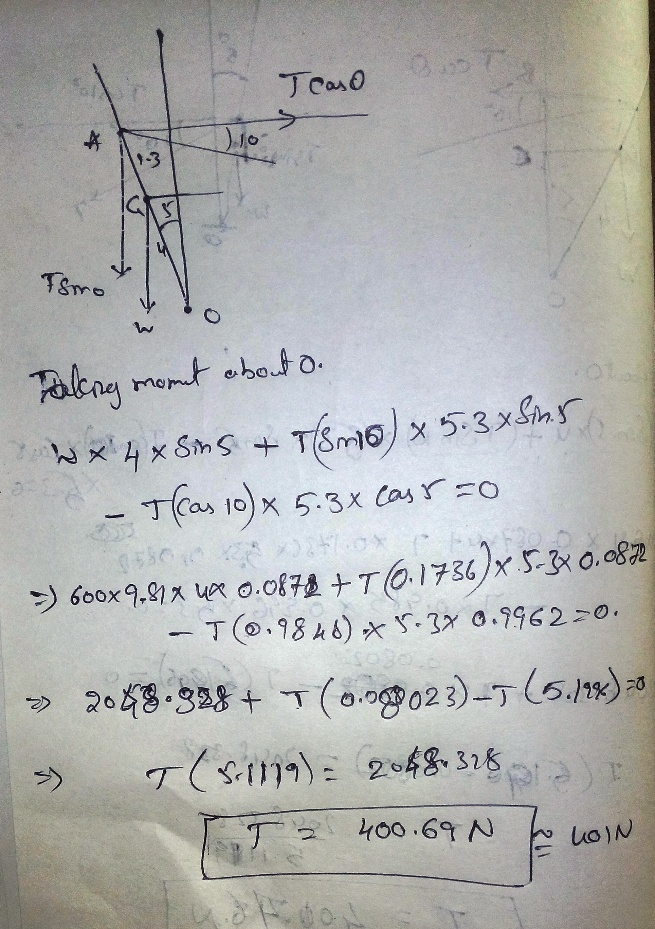 T Cosθ
A
)10
1.3
G
5
4
TSinθ
W
O
Taking momt about O.
W x 4 x Sin5 + T(Sin10) x 5.3 x Sin5
- T(Cos 10) x 5.3 x Cos 5 = 0
=> 600x9.81x 4x 0.0872 + T(0.1736) x 5.3x 0.0872
- T(0.9848) x 5.3x 0.9962 = 0.
=> 2048.328 + T(0.08023) - T(5.1998) = 0
=> T(5.1119) = 2048.328
T = 400.69 N ≅ 401N